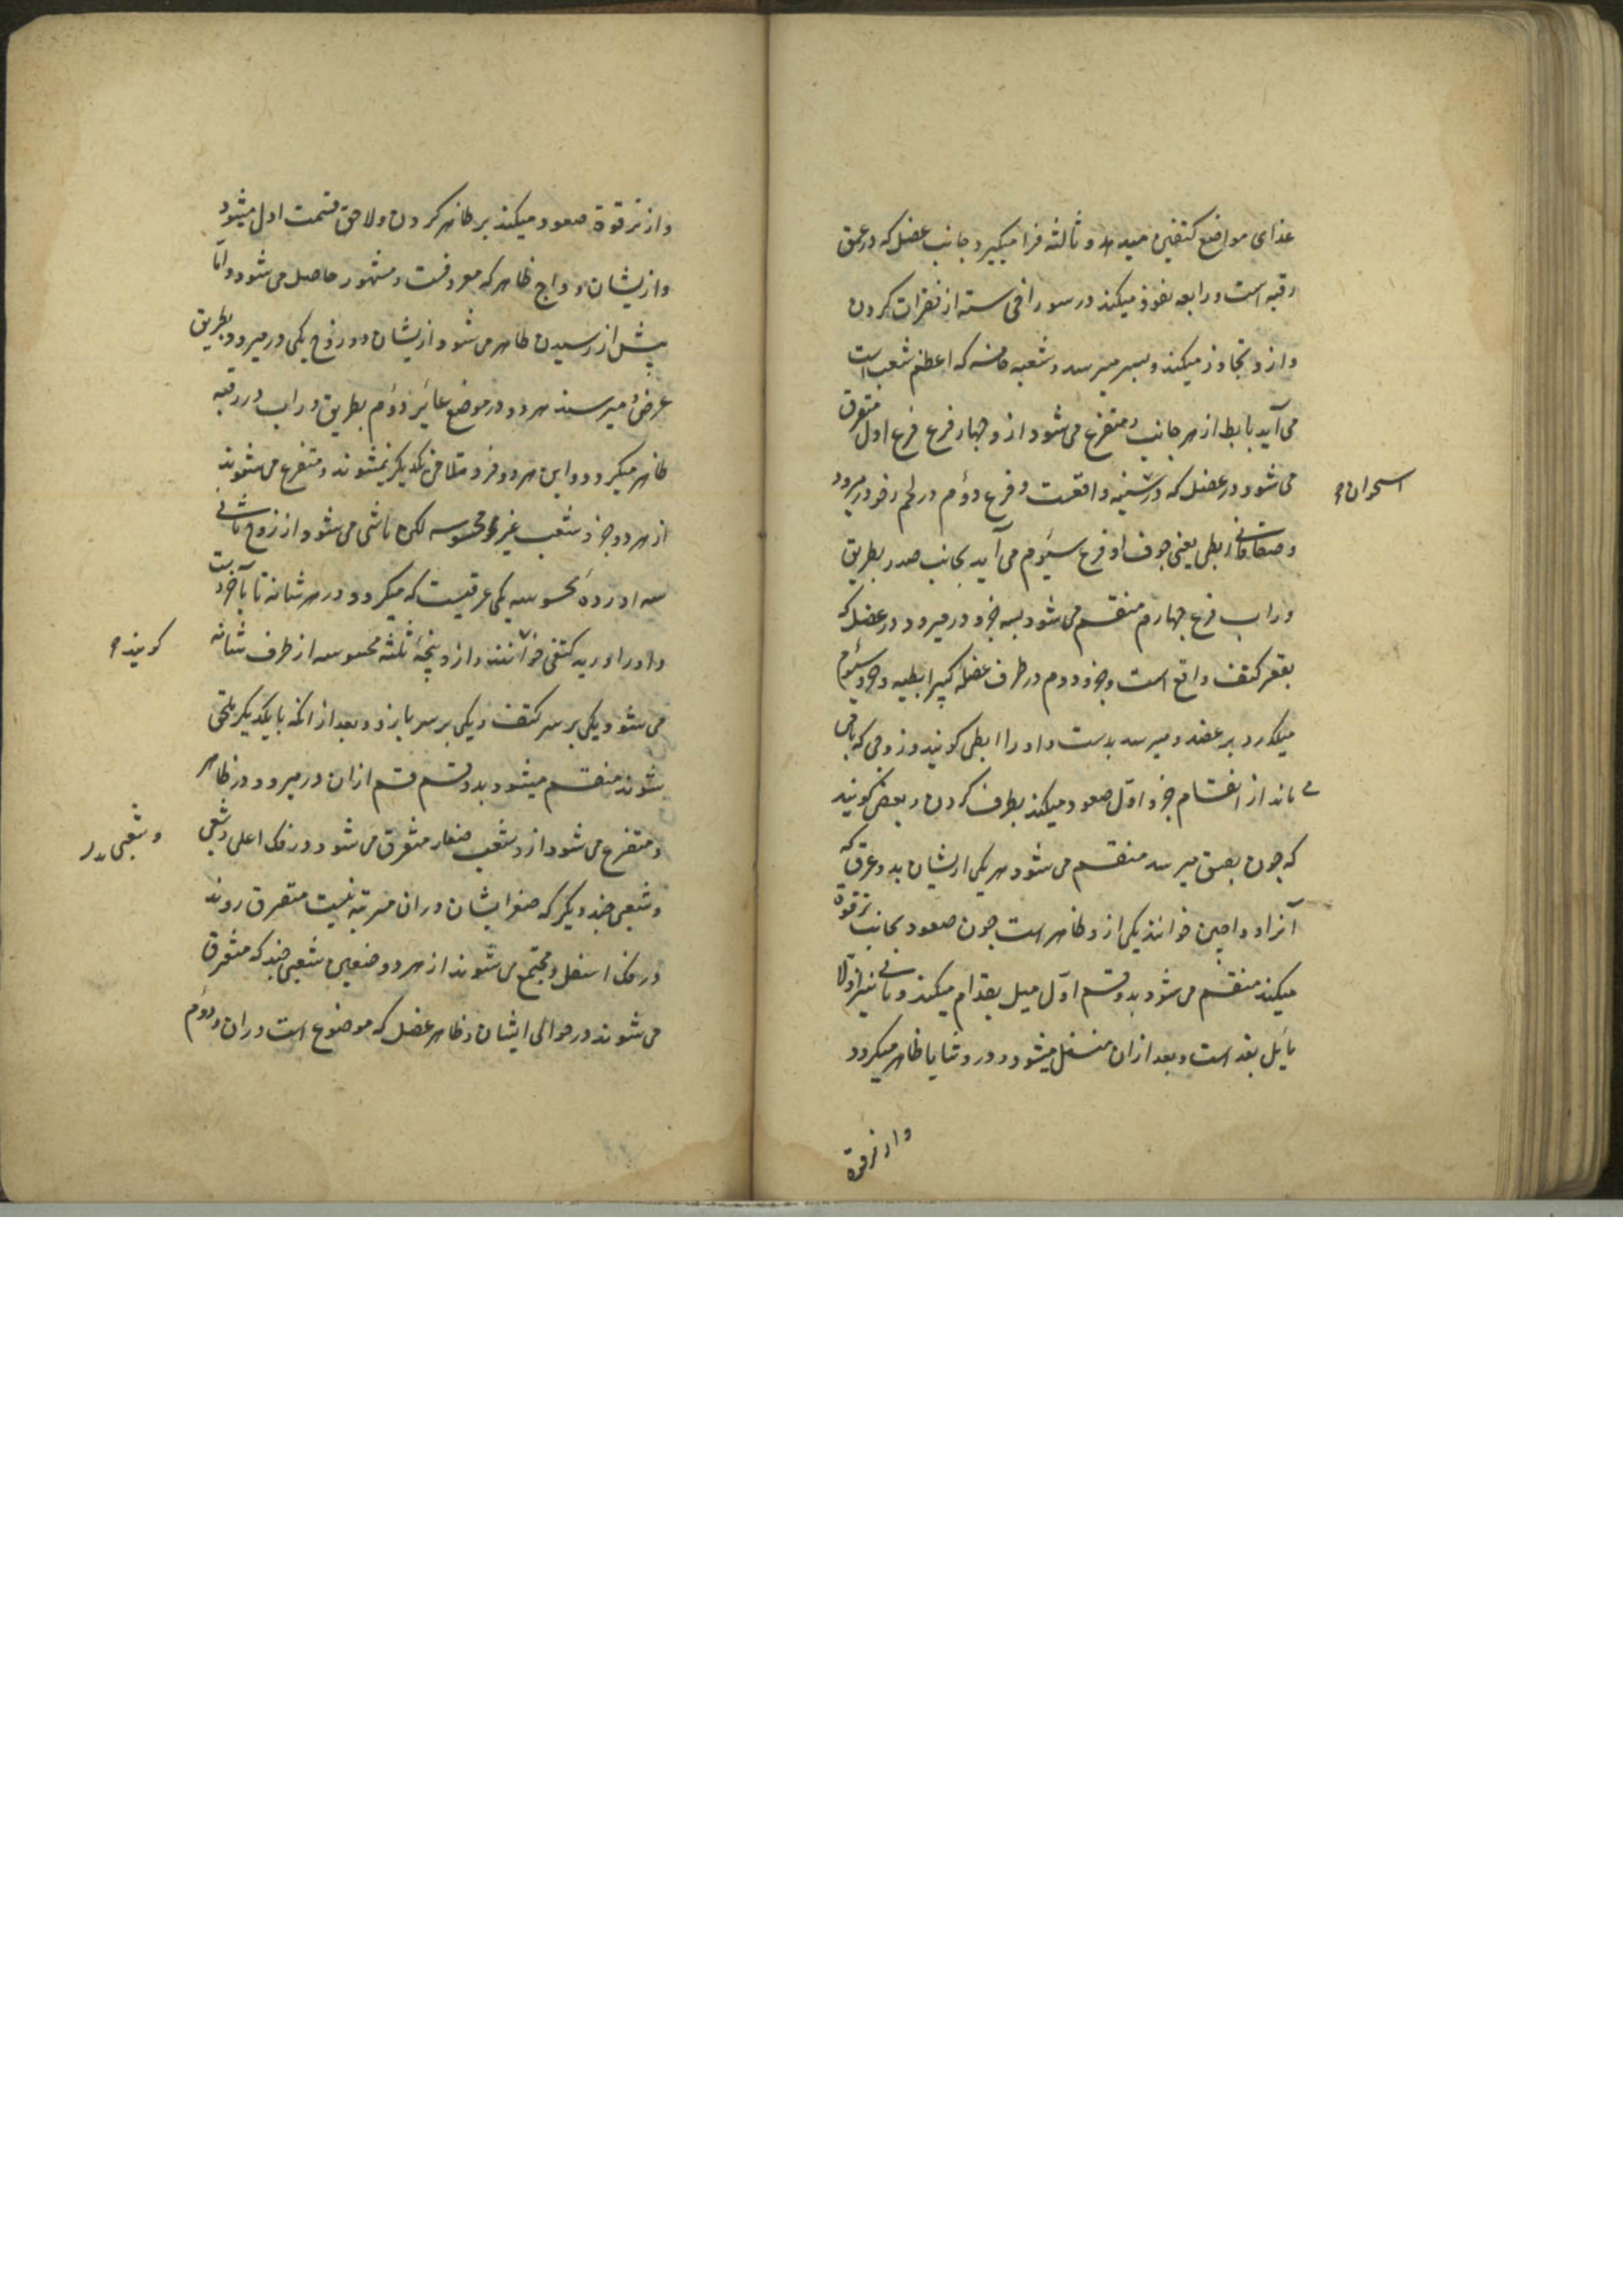 غذای مواضع کتفین میدهد و ثالثه فرا میگیرد جانب عضل که در عمق
رقبه است و رابعه نفوذ میکند در سوراخی سته از نقرات کردن
و ازو تجاوز میکند و بسر میرسد و شعبه خامسه که اعظم شعب است
می آید بابط از هر جانب و متفرع می شود ازو چهار فرع فرع اول متفرق
می شود در عضل که در سینه واقعست و فرع دوم در لحم رخو در میرود
و صفاقات ابطی یعنی جوف او فرع سیوم می آید بجانب صدر بطریق
وراب فرع چهارم منقسم می شود بسه جزو در میرود در عضل که
بقعر کتف واقع است و جزو دوم در طرف عضله کبیر ابطیه و جزو سیوم
میگذرد بر عضد و میرسد بدست و او را ابطی کویند و زوجی که باقی
می ماند از انقسام جزو اول صعود میکند بطرف کردن و بعضی کویند
که چون بعمق میرسد منقسم می شود هر یکی ازیشان بدو عرق که
آنرا وداجین خوانند یکی ازو ظاهر است چون صعود بجانب ترقوة
میکند منقسم می شود بدو قسم اول میل بقدام میکند و ثانی نیز اولا
مایل بقد است و بعد ازان منسفل میشود و در وثنایا ظاهر میکردد
استخوان
واز ترقوة
واز ترقوة صعود میکند بر ظاهر کردن و لاحق قسمت اول میشود
وازیشان وداج ظاهر که معروفست و مشهور حاصل می شود و اما
پیش از رسیدن ظاهر می شود ازیشان دو زوج یکی در میرود بطریق
عرض و میرسند هر دو در موضع غائر و دوم بطریق وراب در رقبه
ظاهر میکردد و این هر دو فرد متلاقی یکدیکر نمیشوند و متفرع می شوند
از هر دو جزو شعب غیر محسوسه لکن ناشی می شود از زوج ثانی
سه اورده محسوسه یکی عرقیست که میکردد در هر شانه تا بآخر دست
و او را ورید کتفی خوانند و ازو پنجه ثلثه محسوسه از طرف شانه
می شود یکی بر سر کتف و یکی بر سر بازو و بعد از انکه با یکدیکر ملتقی
شوند منقسم میشود بدو قسم قسم ازان در میرود در ظاهر
و متفرع می شود ازو شعب صغار متفرق می شود در فک اعلی و شعبی
و شعبی چند دیکر که صغر ایشان دران مرتبه نیست متفرق روند
در فک اسفل و مجتمع می شوند از هر دو صنفین شعبی چند که متفرق
می شوند در حوالی ایشان و ظاهر عضل که موضوع است دران و دوم
کویند
و شعبی